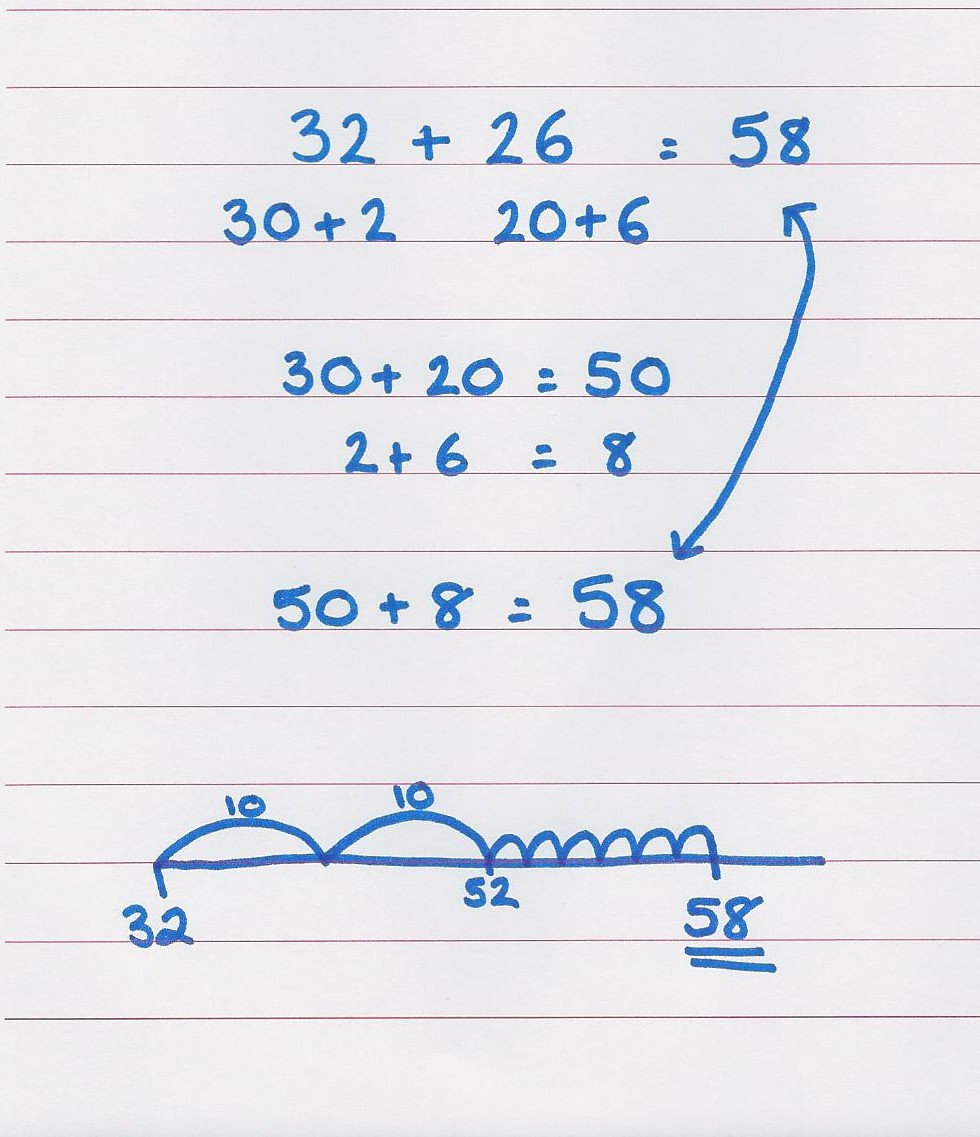 32 + 26 = 58
30+2 20+6
30+ 20 = 50
2+ 6 = 8
50 + 8 = 58
10 10
52
32 58